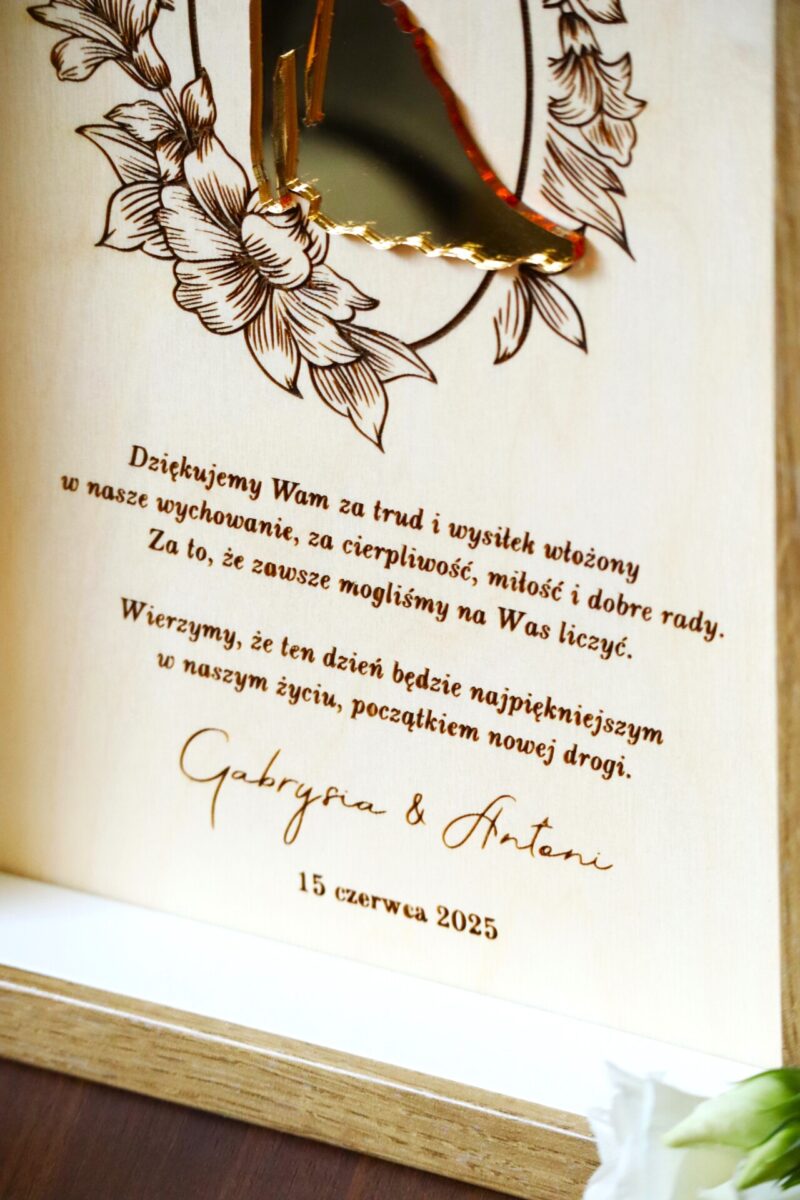 Dziękujemy Wam za trud i wysiłek włożony
w nasze wychowanie, za cierpliwość, miłość i dobre rady.
Za to, że zawsze mogliśmy na Was liczyć.
Wierzymy, że ten dzień będzie najpiękniejszym
w naszym życiu, początkiem nowej drogi.
Gabrysia & Antoni
15 czerwca 2025